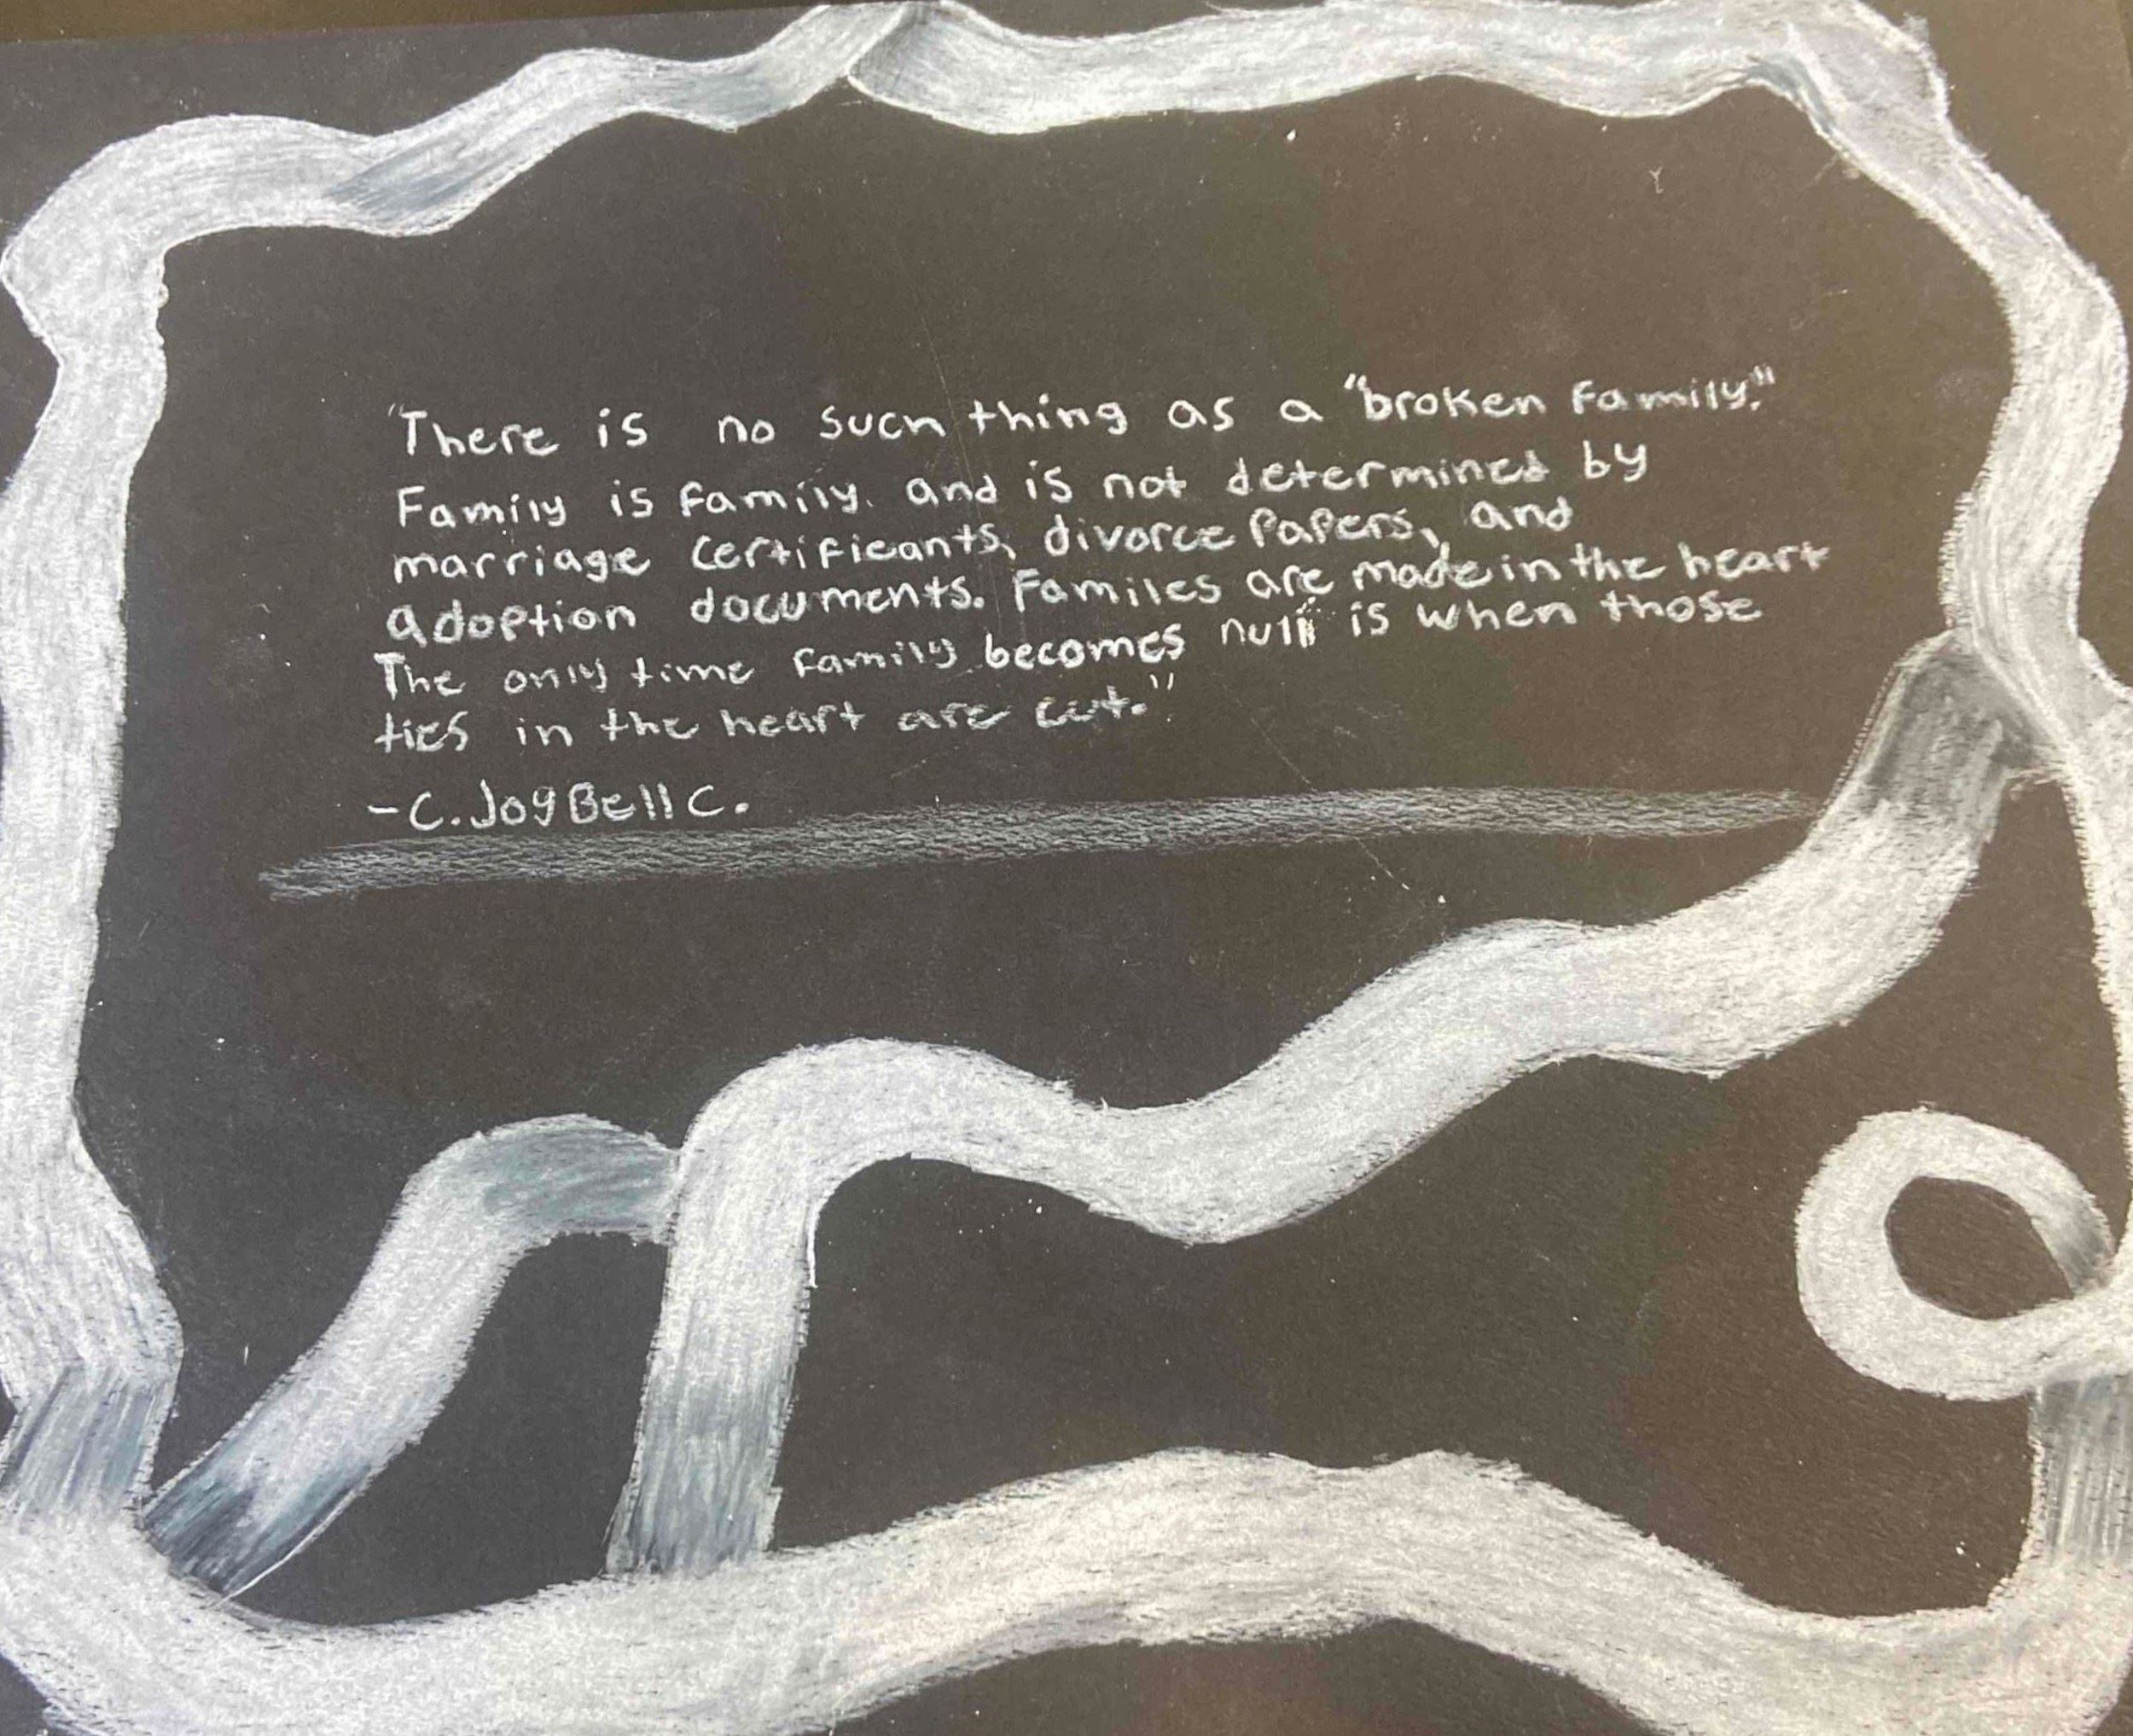 "There is no such thing as a "broken family."
Family is family. and is not determined by
marriage certificants, divorce Papers, and
adoption documents. Familes are made in the heart
The only time family becomes null is when those
ties in the heart are cut."
-C.JoyBell C.